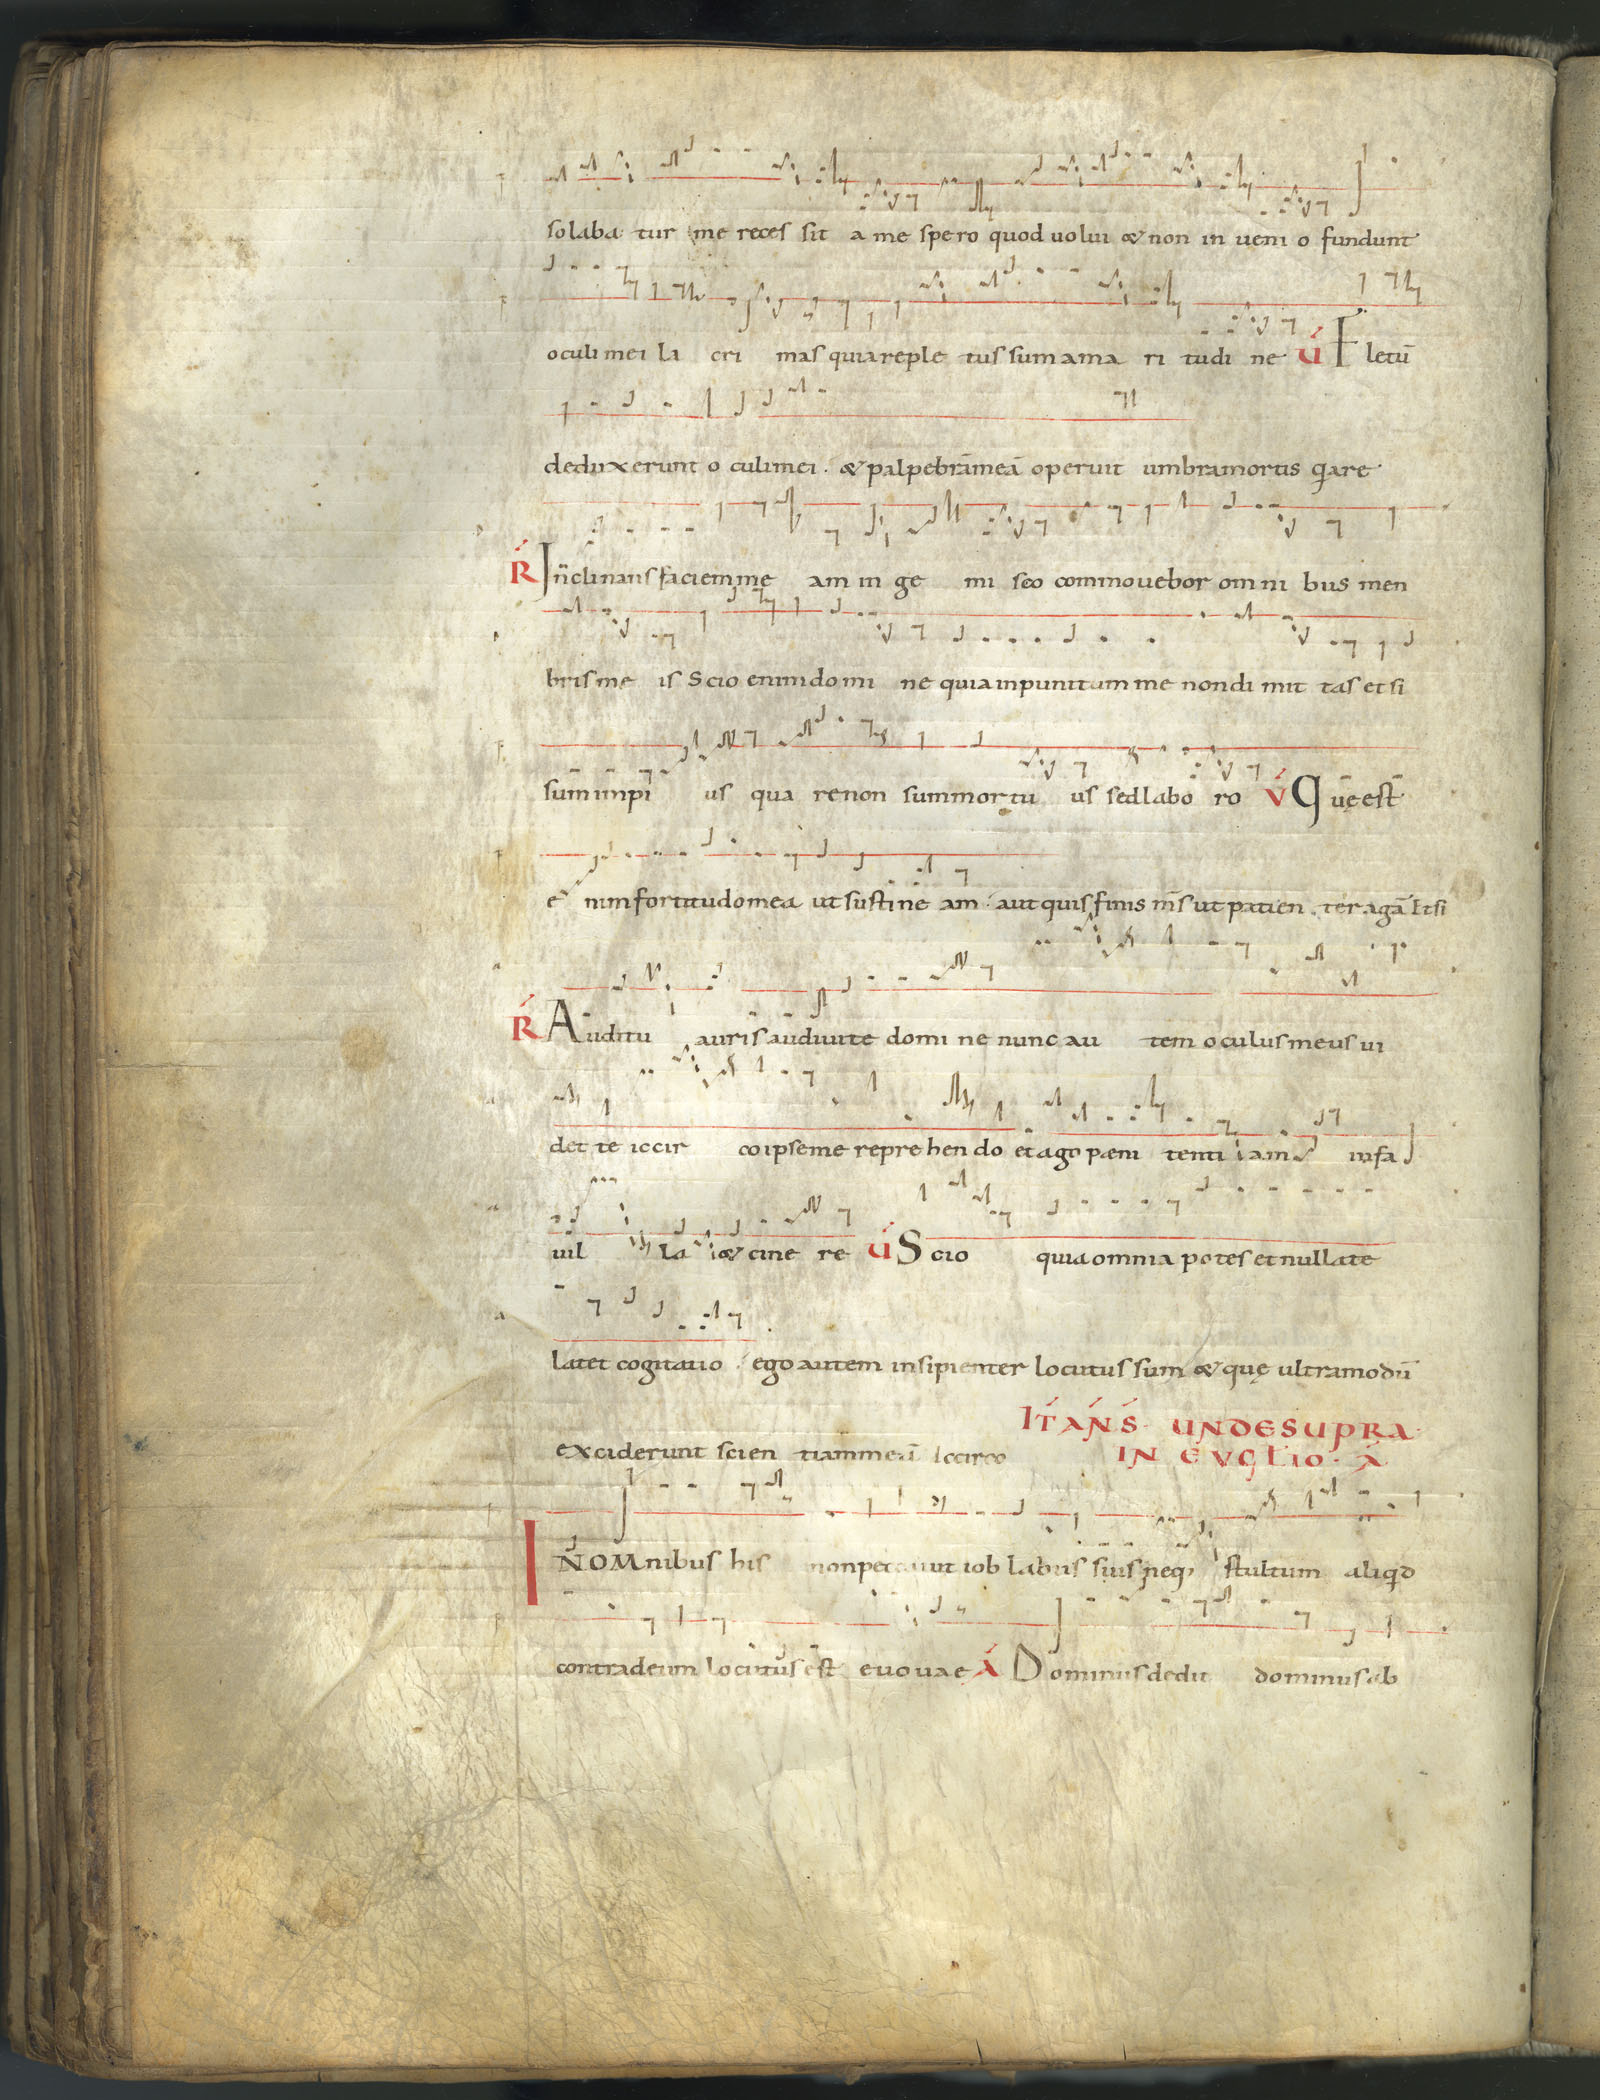 solaba tur me reces sit a me spero quod uolui & non in ueni o fundunt
oculi mei la cri mas quia reple tus sum ama ri tudi ne V Fletū
deduxerunt o culi mei . & palpebrā meā operuit umbra mortis Quare
R Inclinans faciem me am in ge mi sco commouebor omni bus men
bris me is Scio enim domi ne quia inpunitum me non dimit tas et si
sum impi us qua re non sum mortu us sed labo ro V Quę est
e nim fortitudo mea ut susti ne am . aut quis finis m̄s ut patien ter agā Etsi
R Auditu auris audiui te domi ne nunc au tem oculus meus ui
det te iccir co ipse me reprehendo et ago pæni tenti iam in fa
uil la & cine re V Scio quia omnia potes et nulla te
latet cogitatio . ego autem insipienter locutus sum & quę ultra modū
ITANS UNDE SUPRA
exciderunt scien tiam meā Iccirco IN EVGLIO . A
IN OMnibus his non peccauit iob labiis suis neq; stultum aliqd
contra deum locutus est euouae A Dominus dedit dominus ab